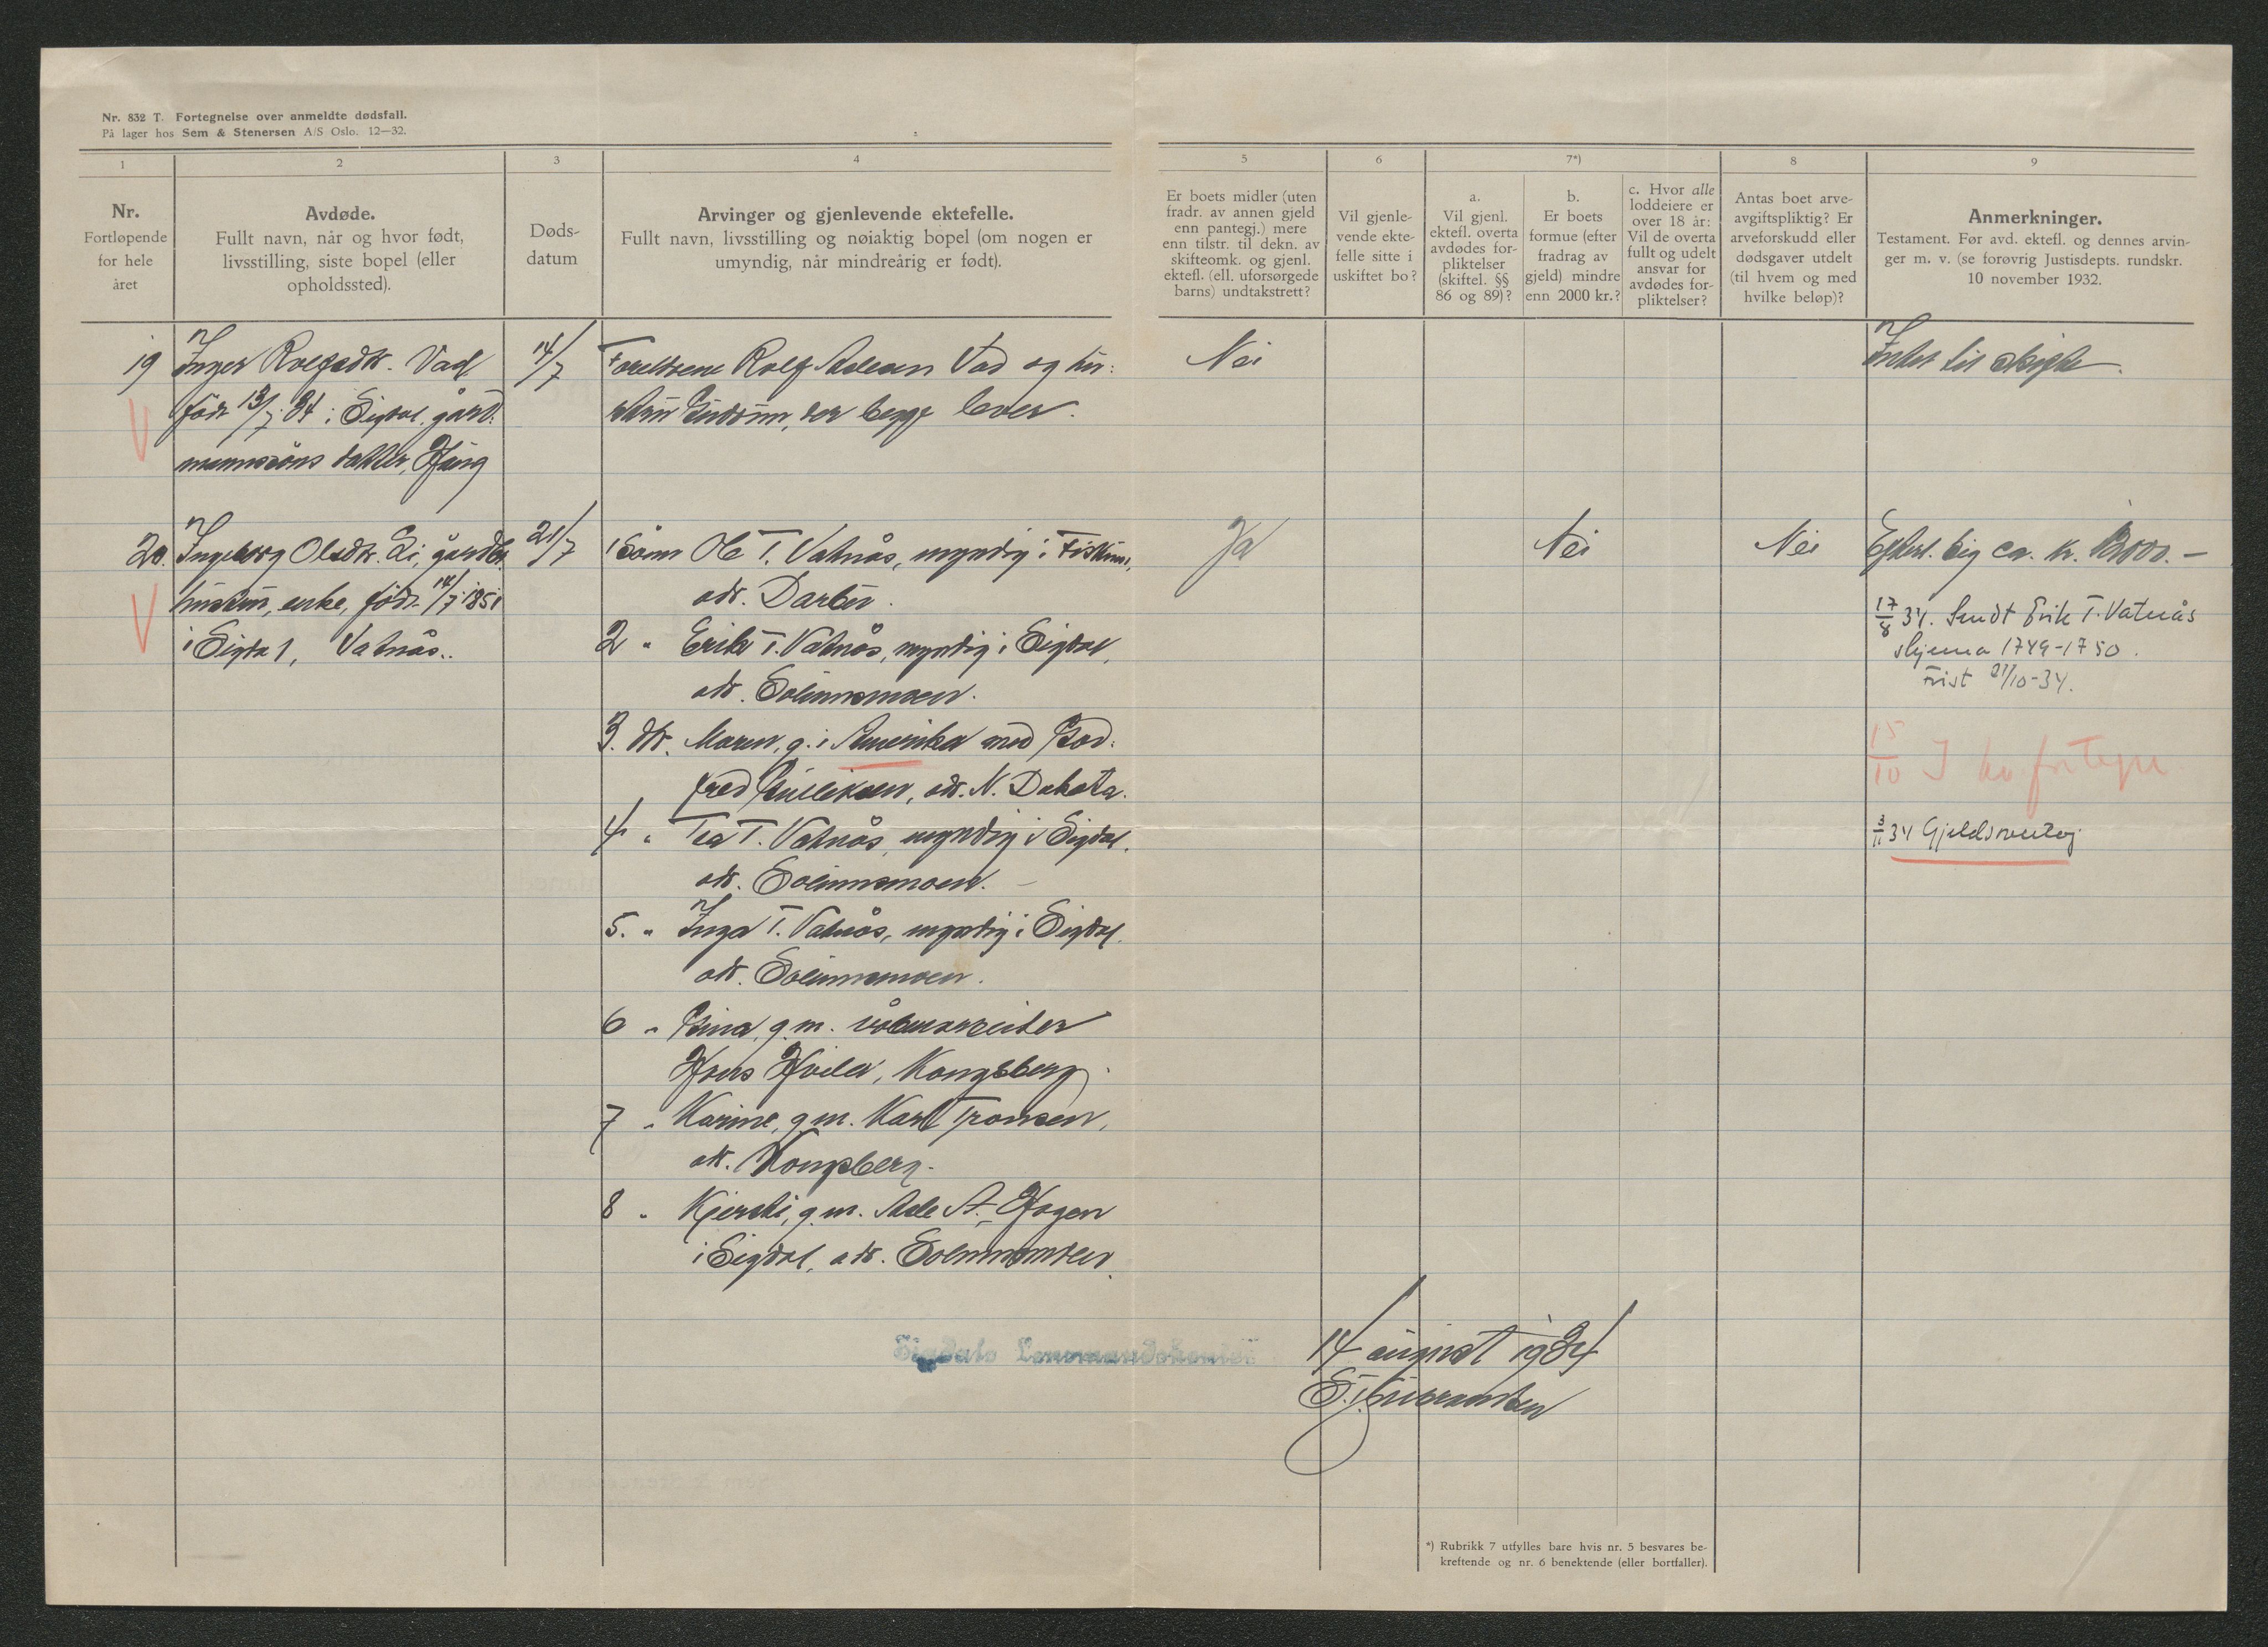 Nr. 832 T. Fortegnelse over anmeldte dødsfall.
På lager hos Sem & Stenersen A/S Oslo. 12—32.
1
2
3
4
5
6
7*)
8
9
Nr.
Fortløpende
for hele
året
Avdøde.
Fullt navn, når og hvor født,
livsstilling, siste bopel (eller
opholdssted).
Døds-
datum
Arvinger og gjenlevende ektefelle.
Fullt navn, livsstilling og nøiaktig bopel (om nogen er
umyndig, når mindreårig er født).
Er boets midler (uten
fradr. av annen gjeld
enn pantegj.) mere
enn tilstr. til dekn. av
skifteomk. og gjenl.
ektefl. (ell. uforsørgede
barns) undtakstrett?
Vil gjenle-
vende ekte-
felle sitte i
uskiftet bo?
a.
Vil gjenl.
ektefl. overta
avdødes for-
pliktelser
(skiftel. §§
86 og 89)?
b.
Er boets
formue (efter
fradrag av
gjeld) mindre
enn 2000 kr.?
c. Hvor alle
loddeiere er
over 18 år:
Vil de overta
fullt og udelt
ansvar for
avdødes for-
pliktelser?
Antas boet arve-
avgiftspliktig? Er
arveforskudd eller
dødsgaver utdelt
(til hvem og med
hvilke beløp)?
Anmerkninger.
Testament. Før avd. ektefl. og dennes arvin-
ger m. v. (se forøvrig Justisdepts. rundskr.
10 november 1932.
19 Inger Rolfsdtr. Vad
født 13/7 34 i Sigdal, gård-
mannsøns datter,
14/7
Foreldrene Rolf Aslesen Vad og hu-
stru Gudrun, der begge lever.
Nei
Intet til skifte.
20. Ingeborg Olsdtr. Li, gårdbr.
hustru, enke, født 14/7 1851
i Sigdal, Vatnås.
21/7
1 Sønn Ole T. Vatnås, myndig i Fiskum,
adr. Darbu.
2 " Erik T. Vatnås, myndig i Sigdal,
adr. Solumsmoen.
3. dtr. Maren, g. i Amerika med God-
fred Gulliksen, adr. N. Dakota.
4 " Tea T. Vatnås, myndig i Sigdal.
adr. Solumsmoen.
5. " Inga T. Vatnås, myndig i Sigdal.
adr. Solumsmoen.
6 " Gina, g.m. våbenarbeider
Hans Hvila, Kongsberg.
7 " Karine, g.m. Karl Tronsen,
adr. Kongsberg.
8 " Kjersti, g.m. Asle A. Hagen
i Sigdal, adr. Solumsmoen.
Ja
Nei
Nei
ca. kr.
17/8 34. Sendt Erik T. Vatnås
skjema 1749-1750.
Frist 21/10-34.
15/10 I
3/11 34 Gjeldsovertag
Sigdals Lensmandskontor
14 august 1934
*) Rubrikk 7 utfylles bare hvis nr. 5 besvares be-
kreftende og nr. 6 benektende (eller bortfaller).